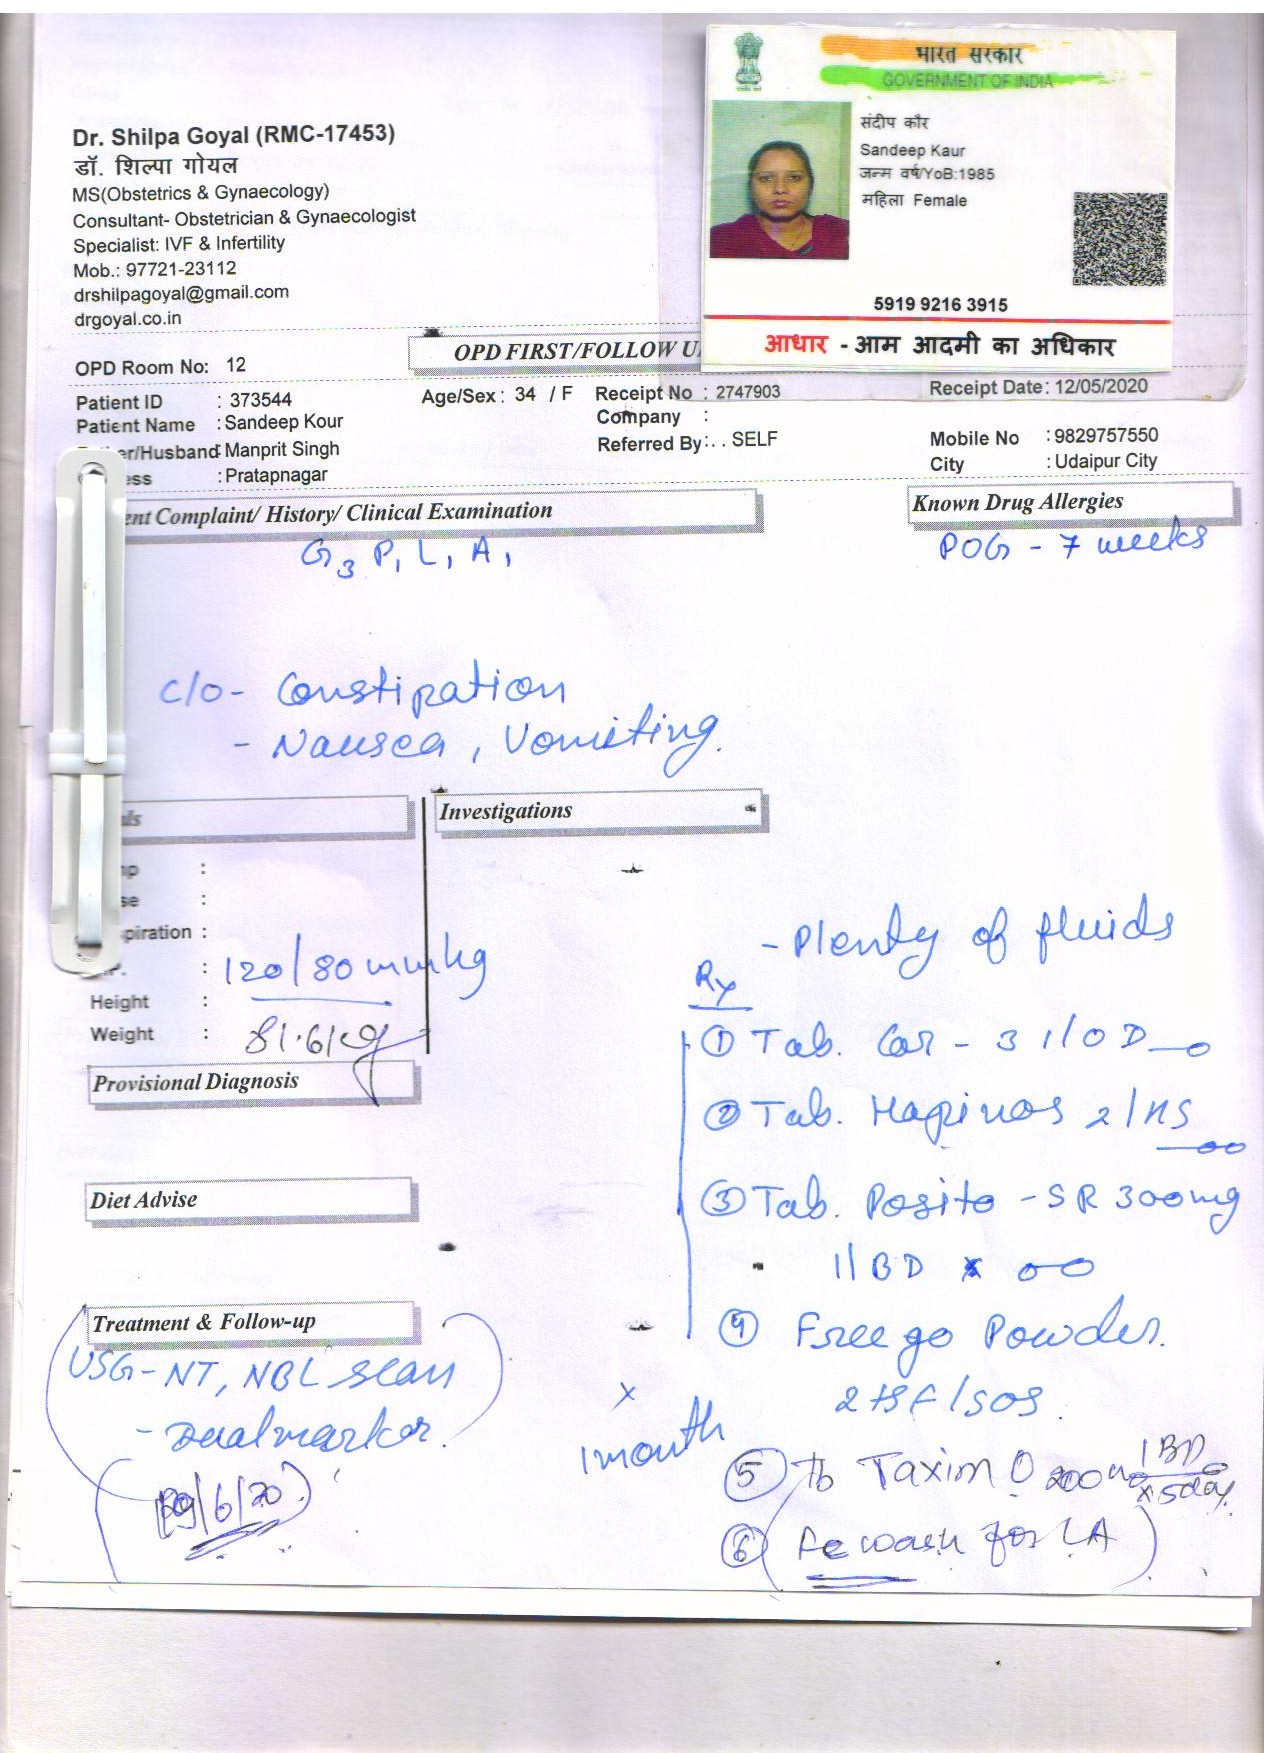 भारत सरकार
GOVERNMENT OF INDIA
संदीप कौर
Sandeep Kaur
जन्म वर्ष/YoB:1985
महिला Female
5919 9216 3915
आधार - आम आदमी का अधिकार
Dr. Shilpa Goyal (RMC-17453)
डॉ. शिल्पा गोयल
MS(Obstetrics & Gynaecology)
Consultant- Obstetrician & Gynaecologist
Specialist: IVF & Infertility
Mob.: 97721-23112
drshilpagoyal@gmail.com
drgoyal.co.in
OPD Room No: 12
OPD FIRST/FOLLOW U
Patient ID : 373544 Age/Sex : 34 / F Receipt No : 2747903 Receipt Date: 12/05/2020
Patient Name : Sandeep Kour Company :
er/Husband : Manprit Singh Referred By : . . SELF Mobile No : 9829757550
ess : Pratapnagar City : Udaipur City
ent Complaint/ History/ Clinical Examination Known Drug Allergies
G3 P1 L1 A1 POG - 7 weeks
C/O - Constipation
- Nausea, Vomiting.
ls Investigations
p :
se :
piration :
.P. : 120/80 mmhg
Height :
Weight : 81.6 kg
Provisional Diagnosis
Diet Advise
Treatment & Follow-up
USG - NT, NBL scan
- Dual marker.
- Plenty of fluids
Rx
① Tab. Car - 3 1/OD
② Tab. Hapinos 2/HS
③ Tab. Posito - SR 300mg
1/BD x
④ Free go Powder.
2 tsf/SOS.
x 1 month
⑤ Tb Taxim O 200mg 1 BD x 5 day
⑥ wash for LA